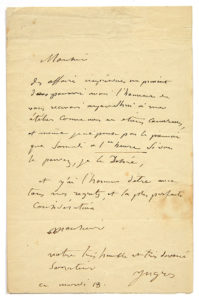 Monsieur
Des affaires imprévues me privent
de pouvoir avoir l'honneur de
vous recevoir aujourd'hui à mon
atelier comme nous en étions convenus,
et même je ne pense pas le pouvoir
que Samedi à 1 heure. Si vous
le pouvez, je le Désire,
et j'ai l'honneur d'être avec
tous mes regrets, et la plus parfaite
Considération
Monsieur
votre très humble et très dévoué
Serviteur
Ingres
ce mardi 13.